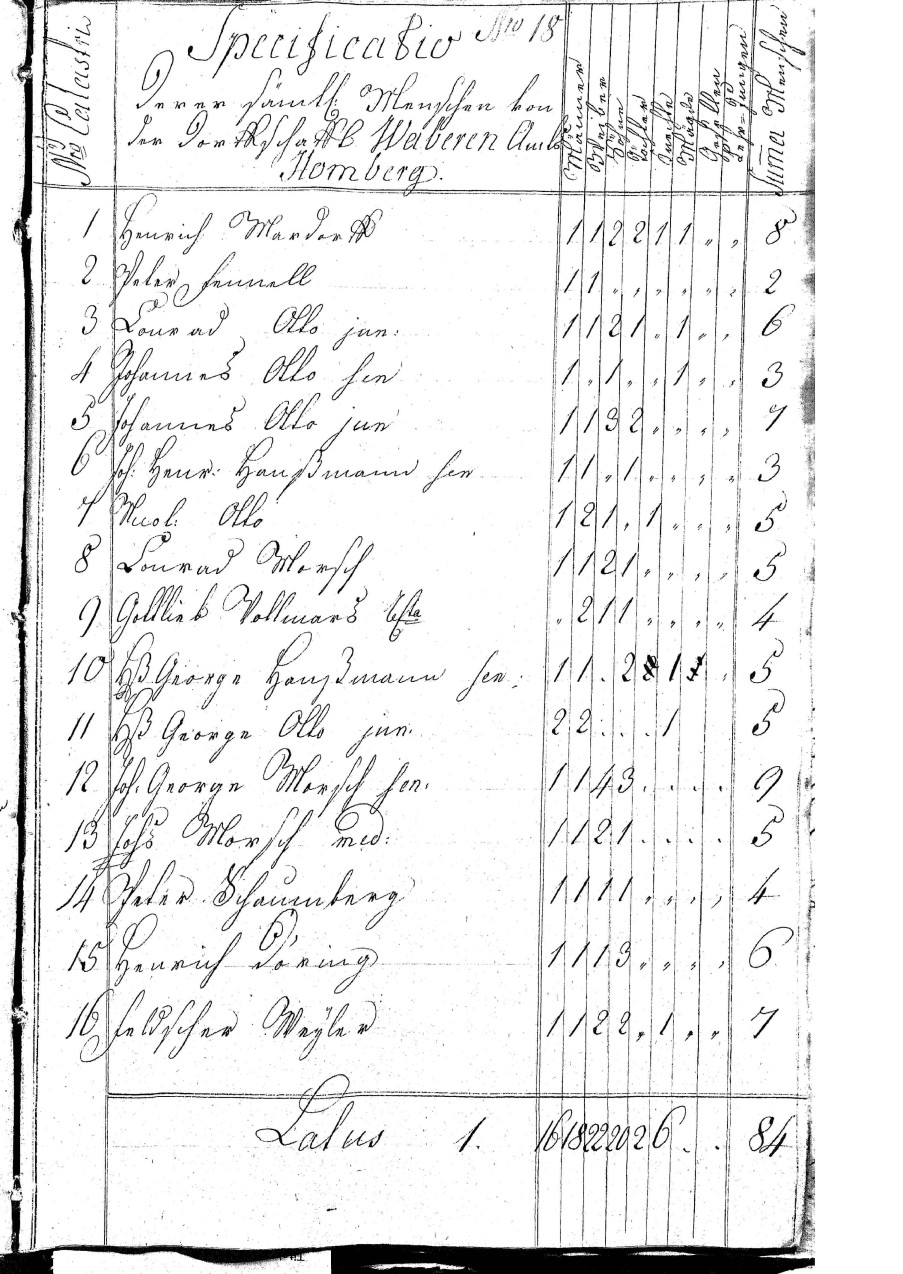 Nro Catastri
Specificatio Nro 18
Derer sämtl: Menschen von
der Dorffschafft Waberen Ambts
Homberg.
Männer
Weiber
Söhne
Töchter
Knechte
Mägde
Gesellen
Lehr-jungen
Suma Menschen
1 Henrich Mardorff 1 1 2 2 1 1 „ „ 8
2 Peter Fennell 1 1 „ „ „ „ „ „ 2
3 Conrad Otto jun: 1 1 2 1 „ 1 „ „ 6
4 Johannes Otto sen 1 „ 1 „ „ 1 „ „ 3
5 Johannes Otto jun 1 1 3 2 „ „ „ „ 7
6 Joh: Henr: Haußmann sen 1 1 „ 1 „ „ „ „ 3
7 Nicol: Otto 1 2 1 „ 1 „ „ „ 5
8 Conrad Morsch 1 1 2 1 „ „ „ „ 5
9 Gottlieb Vollmars „ 2 1 1 „ „ „ „ 4
10 Hß George Haußmann sen: 1 1 . 2 1 . 5
11 Hß George Otto jun. 2 2 . . . 1 5
12 Joh: George Morsch sen. 1 1 4 3 . . . . 9
13 Johs Morsch med: 1 1 2 1 . . . . 5
14 Peter Schaumberg 1 1 1 1 „ „ „ „ 4
15 Henrich Döring 1 1 1 3 „ „ „ „ 6
16 Feldscher Weÿler 1 1 2 2 „ 1 „ „ 7
Latus 1. 16 18 22 20 2 6 . . 84